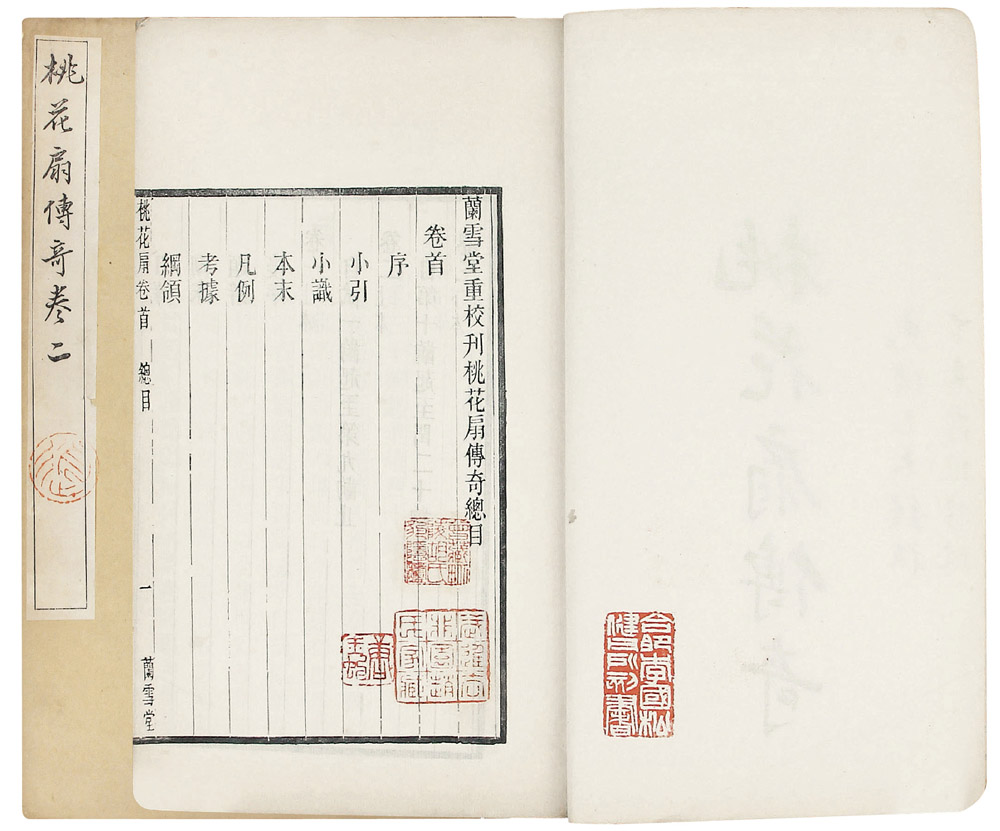 蘭雪堂重校刊桃花扇傳奇總目
卷首
序
小引
小識
本末
凡例
考據
綱領
桃花扇卷首 總目 一 蘭雪堂
桃花扇傳奇卷二